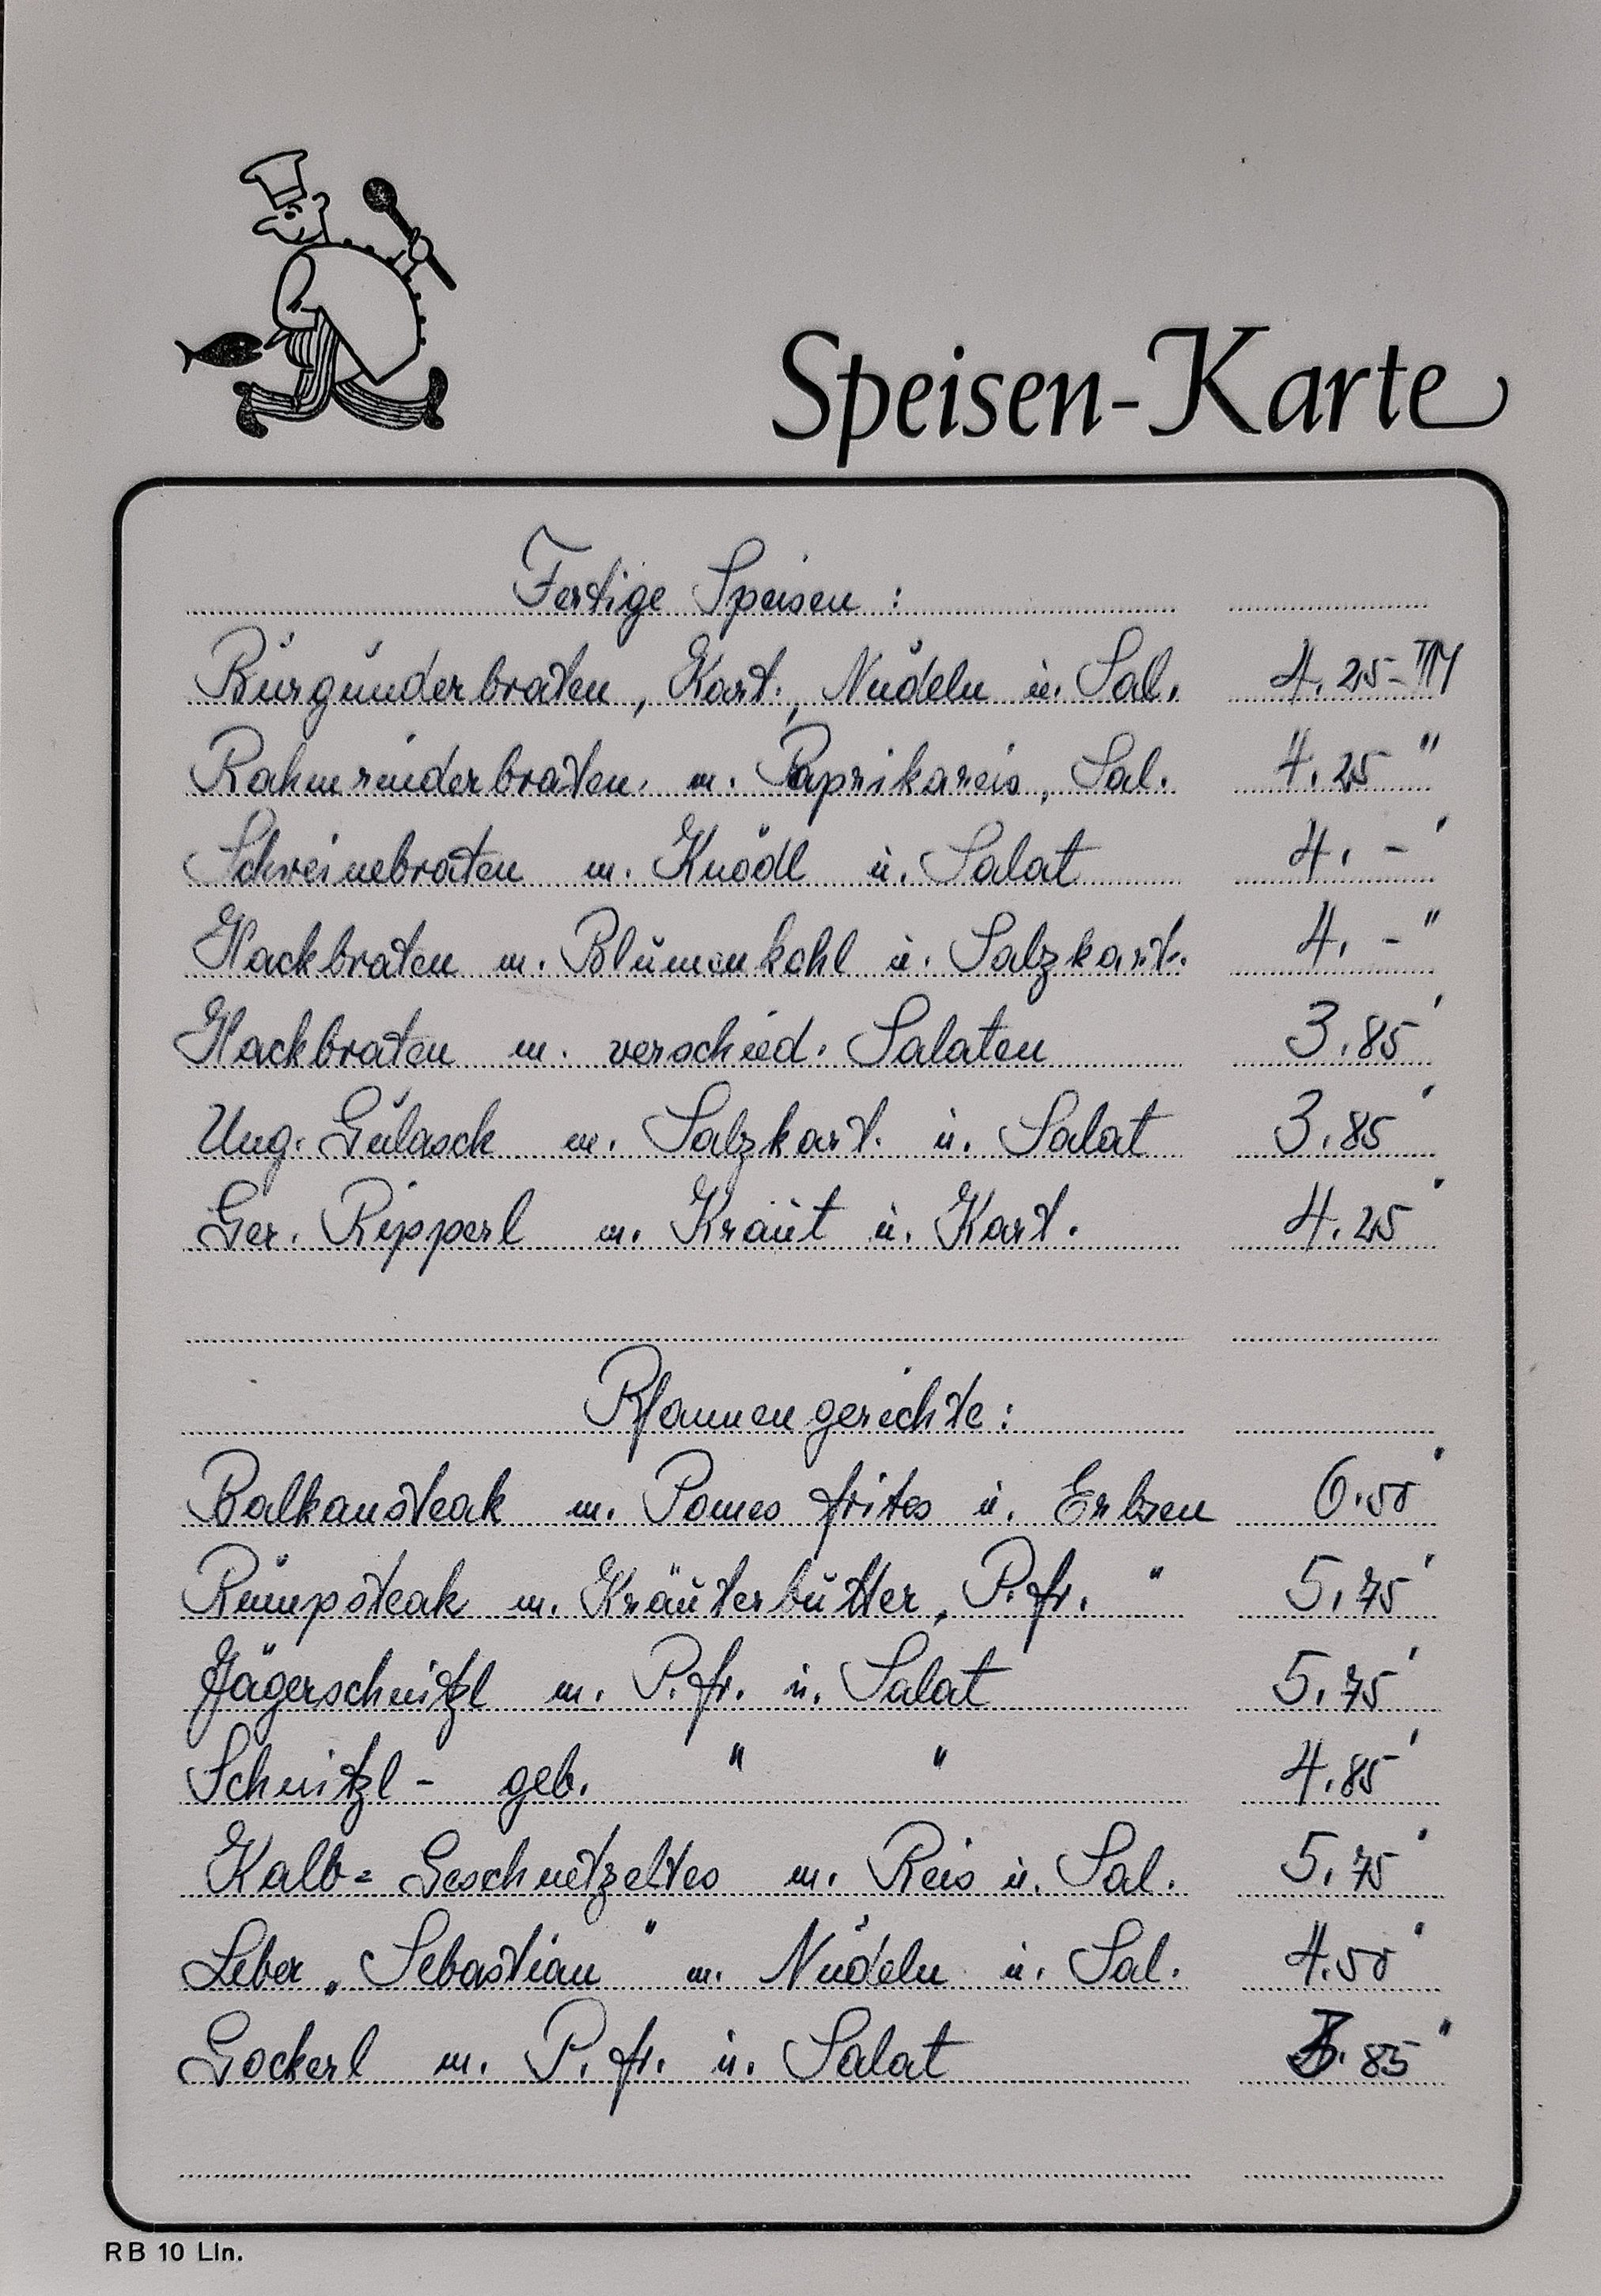 Speisen-Karte
Fertige Speisen :
Burgunderbraten, Kart., Nudeln u. Sal. 4.25-DM
Rahmrinderbraten. m. Paprikareis, Sal. 4.25 "
Schweinebraten m. Knödl u. Salat 4.- '
Hackbraten m. Blumenkohl u. Salzkart. 4.- "
Hackbraten m. verschied. Salaten 3.85 '
Ung. Gulasch m. Salzkart. u. Salat 3.85 '
Ger. Ripperl m. Kraut u. Kart. 4.25 '
Pfannengerichte :
Balkansteak m. Pomes frites u. Erbsen 6.50 '
Rumpsteak m. Kräuterbutter, P.fr. " 5.75 '
Jägerschnitzl m. P.fr. u. Salat 5.75 '
Schnitzl - geb. " " 4.85 '
Kalb= Geschnetzeltes m. Reis u. Sal. 5.75 '
Leber „Sebastian" m. Nudeln u. Sal. 4.50 '
Gockerl m. P.fr. u. Salat .85 "
RB 10 Lin.